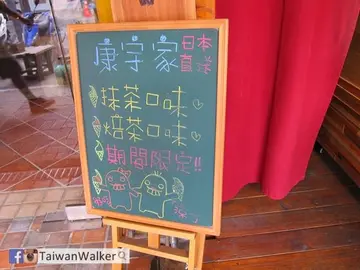 康字家 日本直送
抹茶口味
焙茶口味
期間限定!!
TaiwanWalker